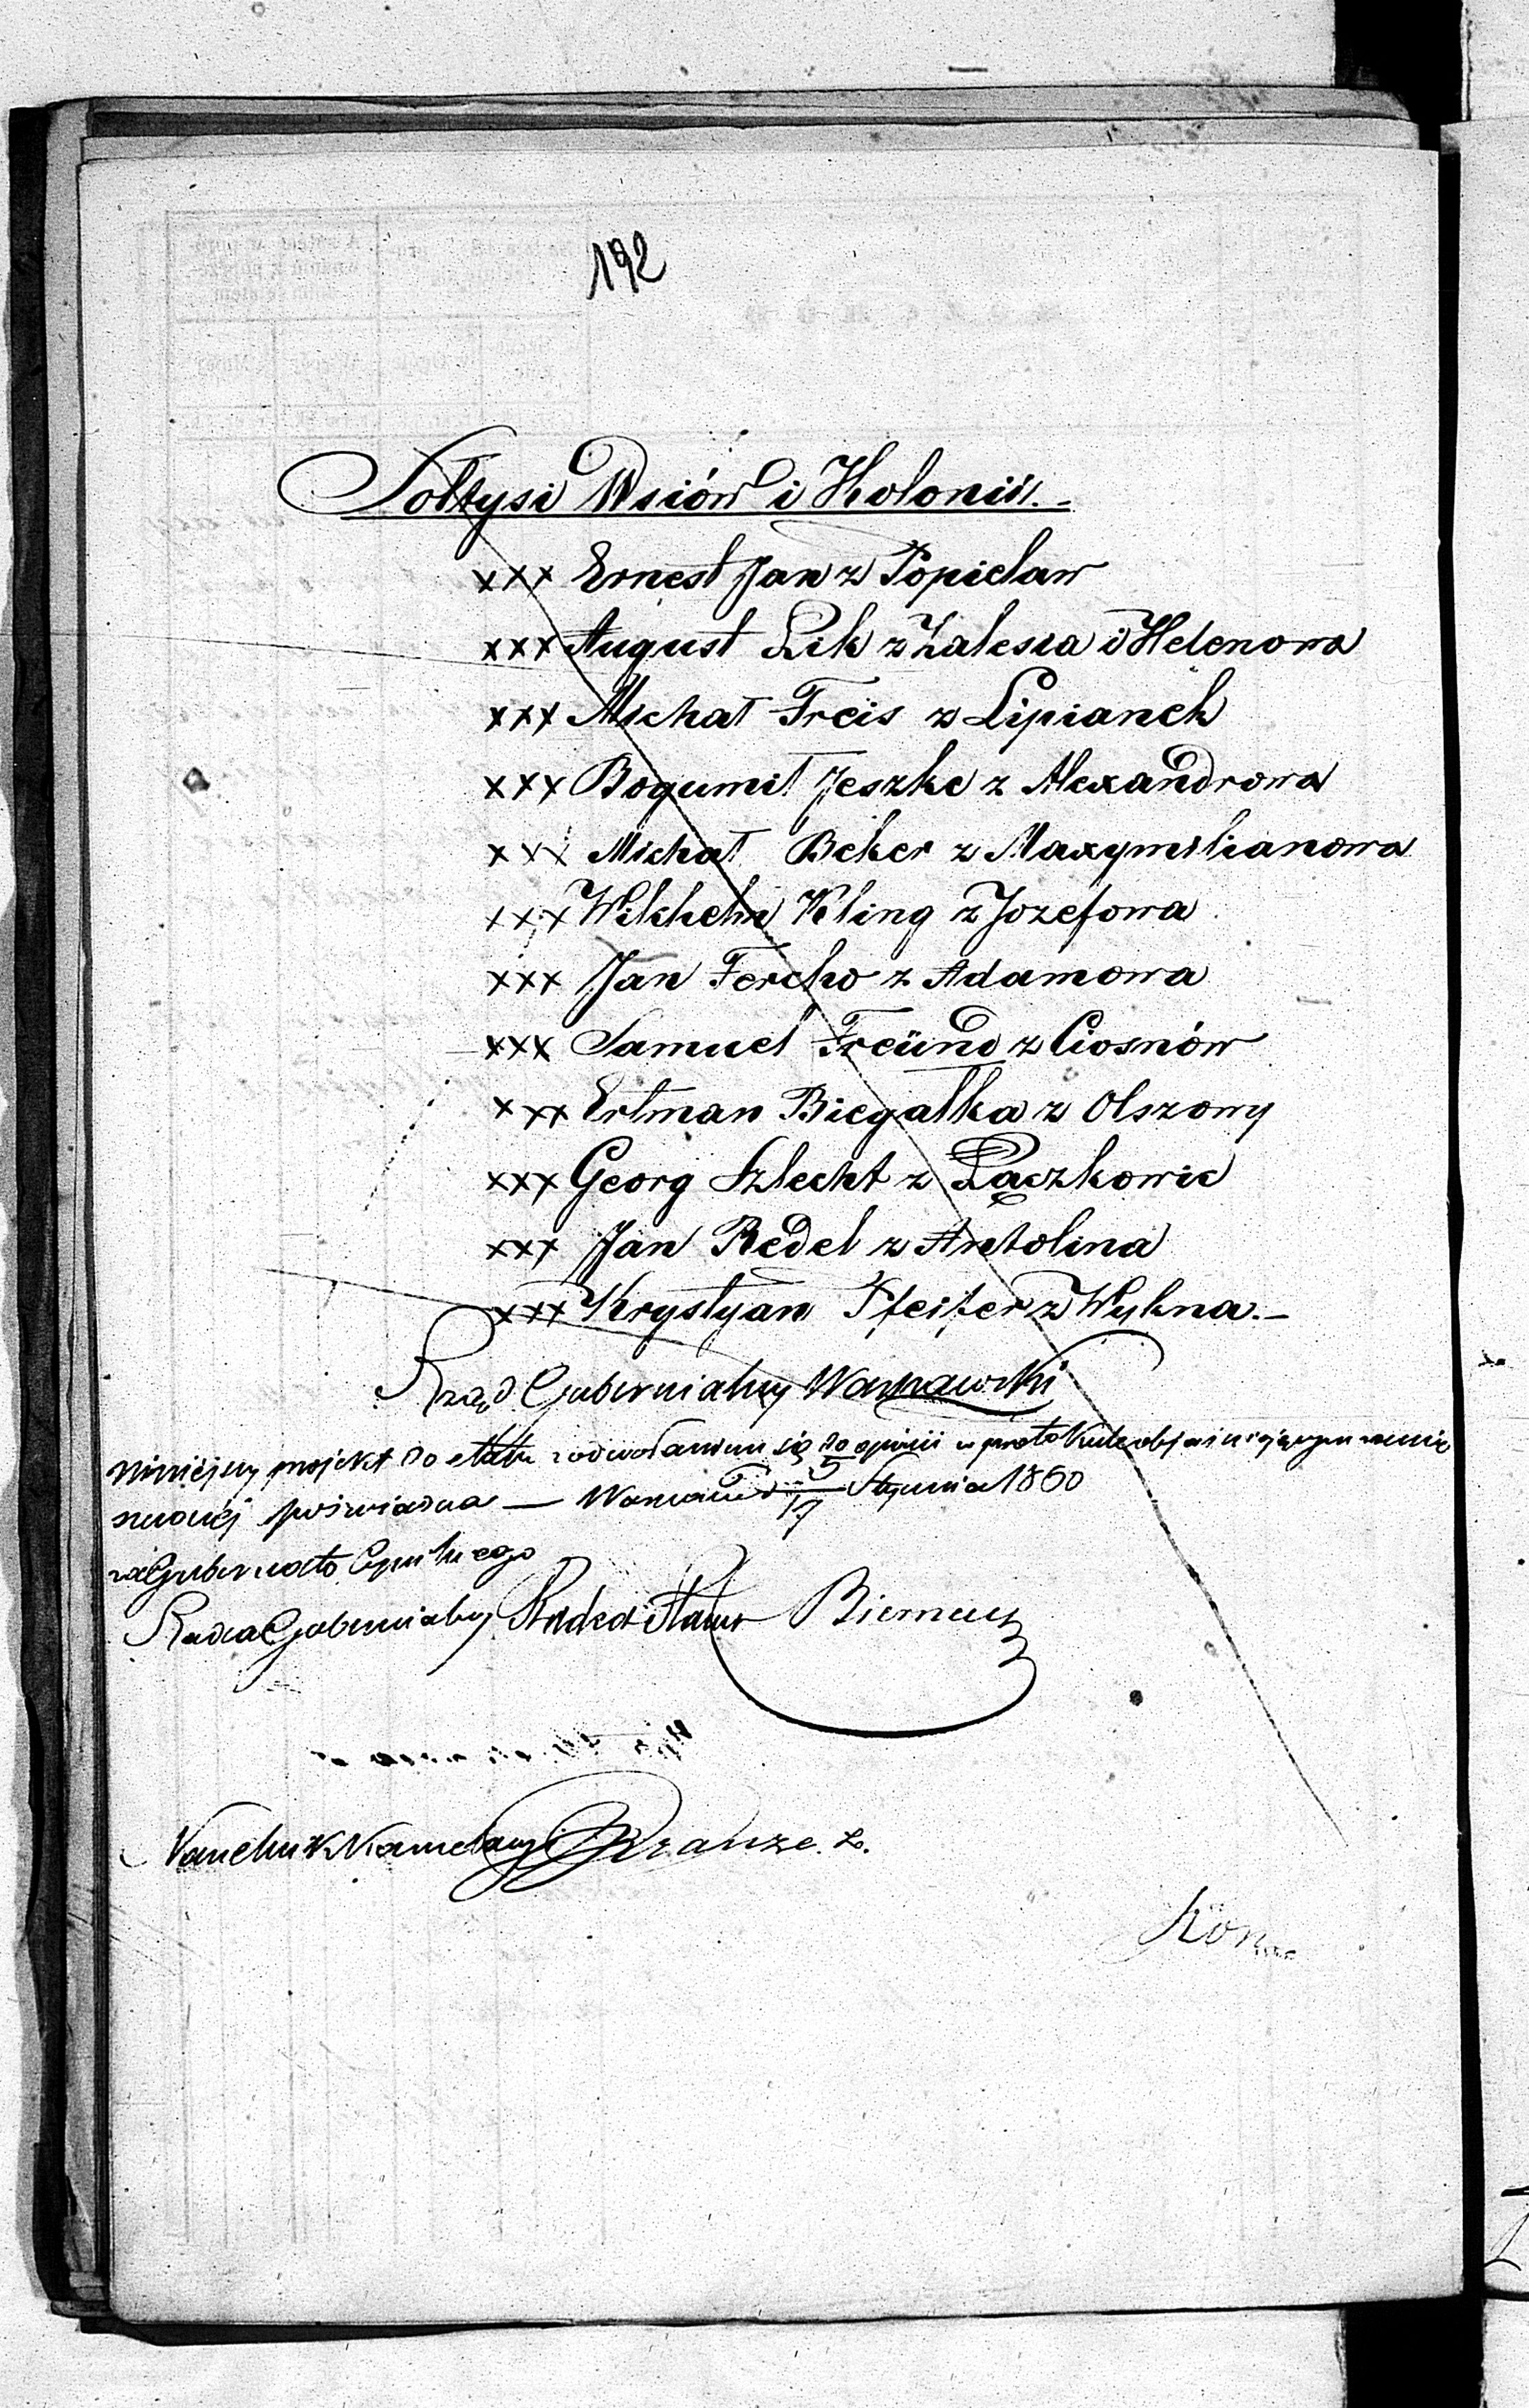 192
Sołtysi Wsiów i Kolonii. -
xxx Ernest Jan z Popielaw
xxx August Lik z Zalesia i Helenowa
xxx Michał Freis z Lipianek
xxx Bogumił Jeszke z Alexandrowa
xxx Michał Beker z Maxymilianowa
xxx Wilhelm Kling z Jozefowa
xxx Jan Fercho z Adamowa
xxx Samuel Freünd z Ciosnów
xxx Ertman Biegałka z Olszowy
xxx Georg Szlecht z Łączkowic
xxx Jan Redel z Antolina
xxx Krystyan Pfeifer z Wykna. -
Rząd Gubernialny Warszawski
Niniejszy projekt do etatu z odwołaniem się do opinii w protokule objaśniającym
poświadcza — Warszawa d 5/17 Stycznia 1860
Gubernatora Cywilnego
Radca Gubernialny Radca Stanu Biernacki
Naczelnik Kancelaryi